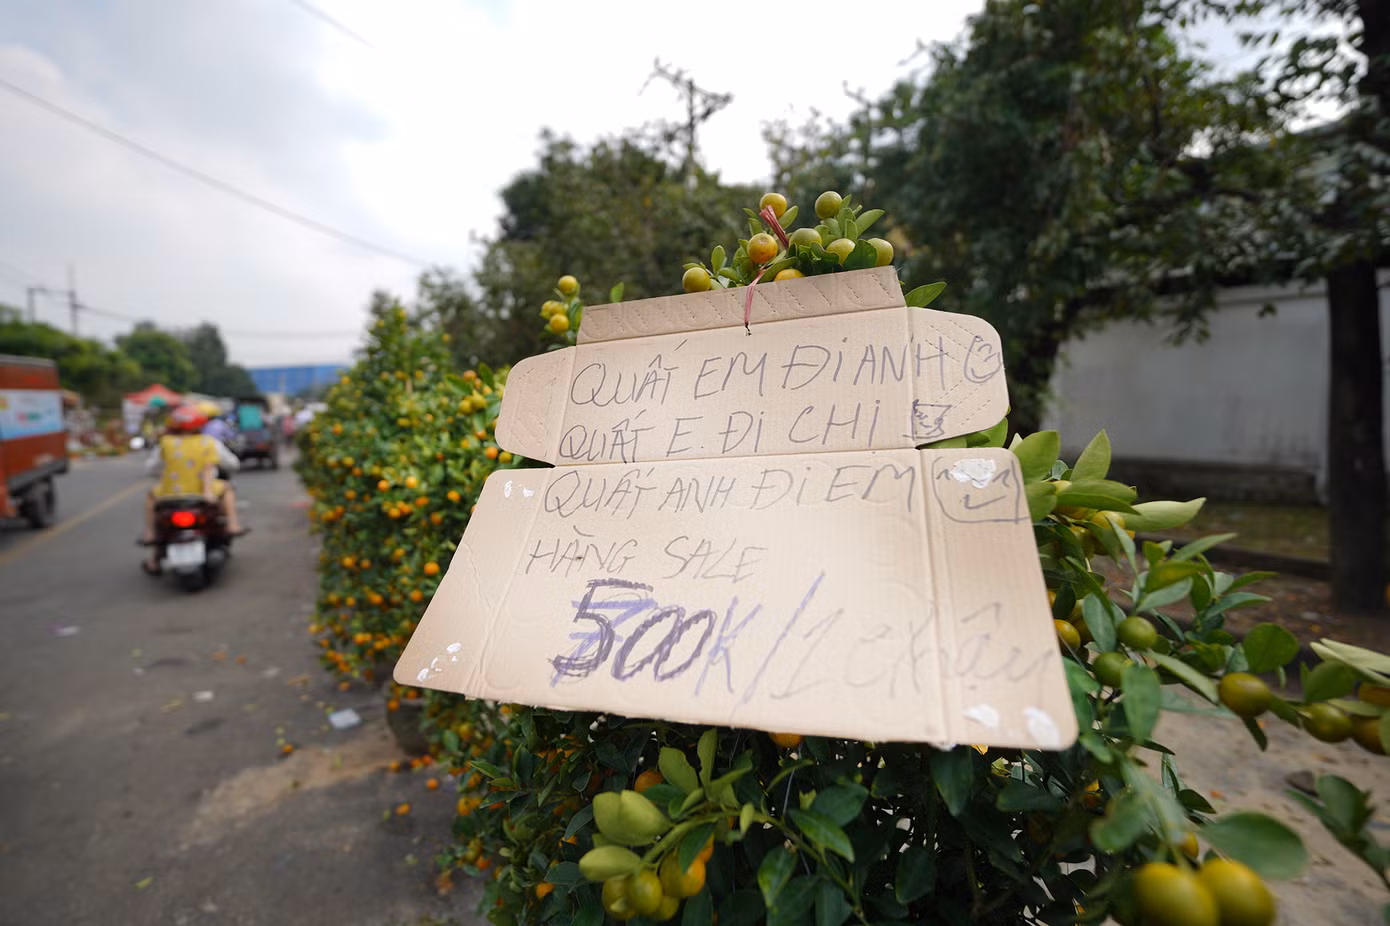 QUẤT EM ĐI ANH
QUẤT E. ĐI CHỊ
QUẤT ANH ĐI EM
HÀNG SALE
500K/1 chậu